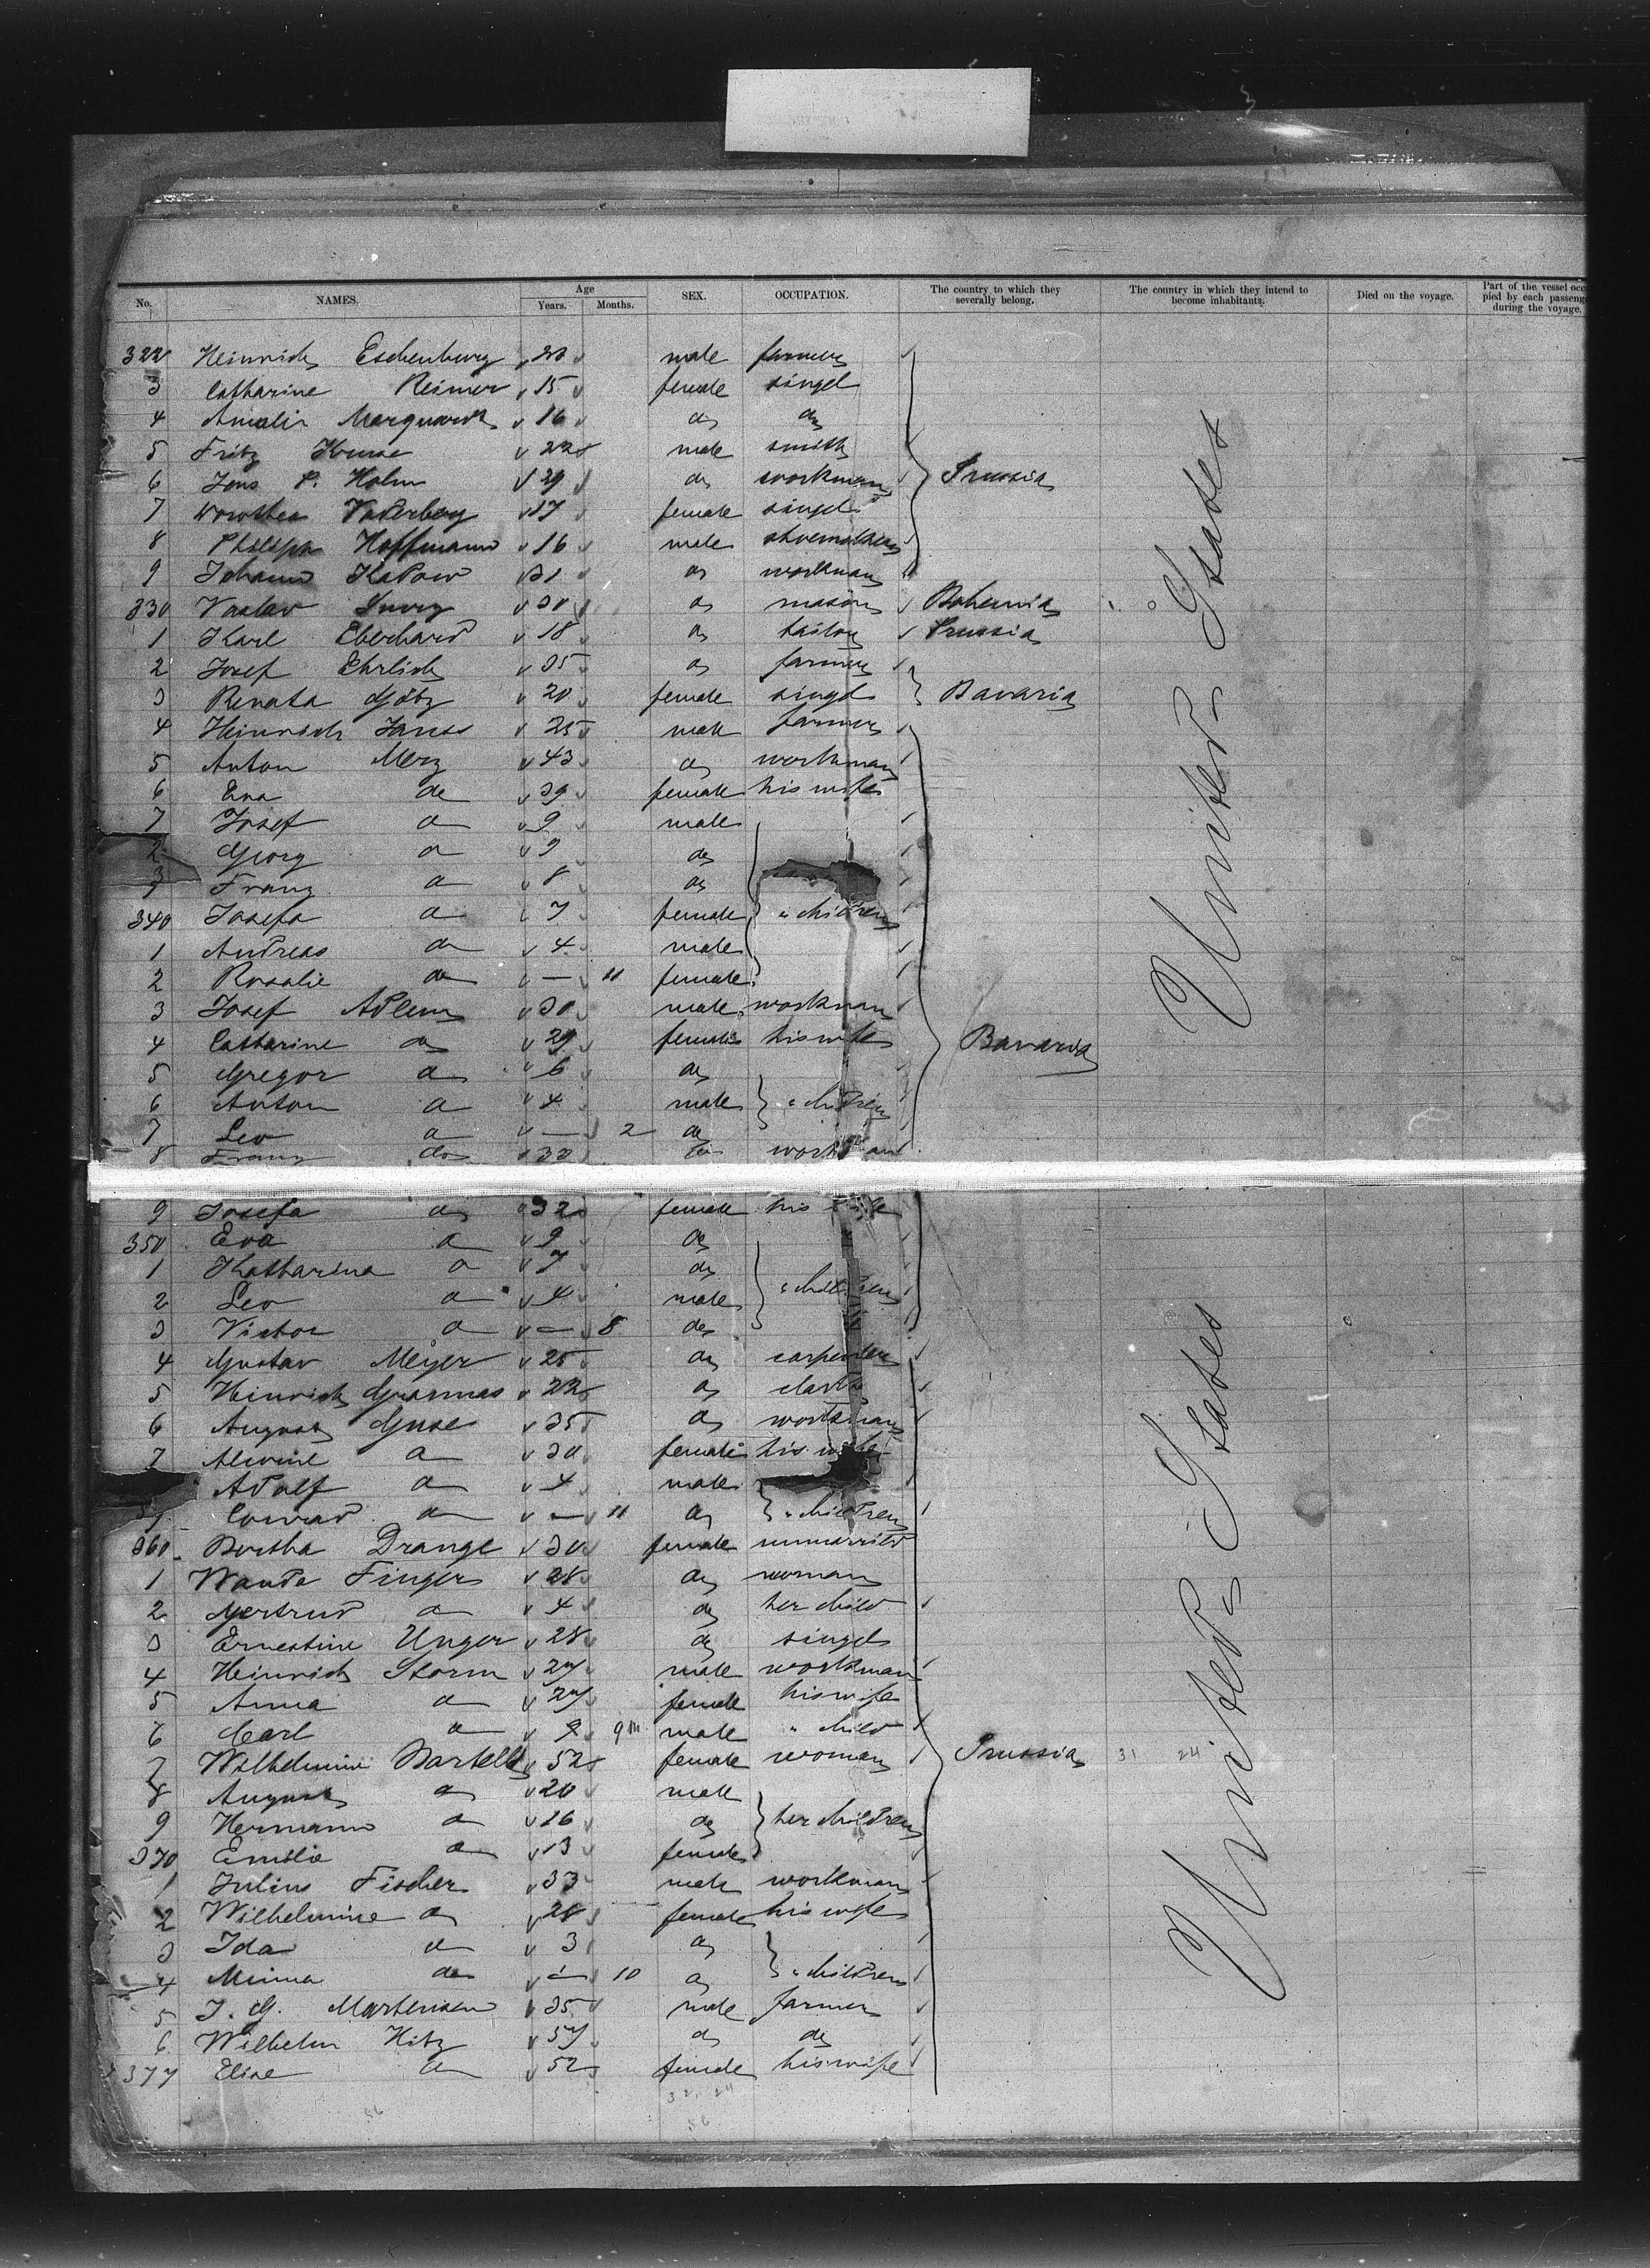 No. NAMES. Age Years. Months. SEX. OCCUPATION. The country to which they severally belong. The country in which they intend to become inhabitants. Died on the voyage. Part of the vessel occu pied by each passenge during the voyage.
322 Heinrich Eschenburg male farmer
3 Catharine Reimer 15 female singel
4 Amalie Marquardt 16 do do
5 Fritz Kruse 22 male smith
6 Jens P. Holm 29 do workman Prussia
7 Dorothea Vaderberg 17 female singel
8 Philipp Hoffmann 16 male shoemaker
9 Johann Katow 31 do workman
330 Vaclav 30 do mason Bohemia
1 Karl Eberhard 18 do tailor Prussia
2 Josef Ehrlich 35 do farmer
3 Renata Götz 20 female singel Bavaria
4 Heinrich Janss 25 male farmer
5 Anton Merz 43 do workman
6 Eva do 39 female his wife
7 Josef do 9 male
Georg do 9 do
Franz do 8 do
340 Josefa do 7 female " children
1 Andreas do 4 male
2 Rosalie do — 11 female
3 Josef Adlem 30 male workman
4 Catharine do 29 female his wife Bavaria
5 Gregor do 6 do
6 Anton do 4 male " children
7 Leo do — 2 do
8 Franz do 33 do workman
9 Josefa do 32 female his wife
350 Eva do 9 do
1 Katharina do 7 do
2 Leo do 4 male " children
3 Victor do — 8 do
4 Gustav Meyer 25 do carpenter
5 Heinrich 22 do clark
6 August Guse 35 do workman
7 Alwine do 30 female his wife
Adolf do 4 male
9 Conrad do — 11 do " children
360 Bertha Drange 30 female unmarried
1 Wanda Finger 28 do woman
2 Gertrud do 4 do her child
3 Ernestine Unger 28 do singel
4 Heinrich Storm 27 male workman
5 Anna do 27 female his wife
6 Carl do 9m male " child
7 Wilhelmine Bartells 52 female woman Prussia 31 24
8 August do 20 male
9 Hermann do 16 do her children
370 Emilie do 13 female
1 Julius Fischer 33 male workman
2 Wilhelmine do 28 female his wife
3 Ida do 3 do
4 Minna do — 10 do " children
5 J. G. Martensen 35 male farmer
6 Wilhelm Hitz 57 do do
377 Elise do 52 female his wife
32 24
56
56
United States
United States